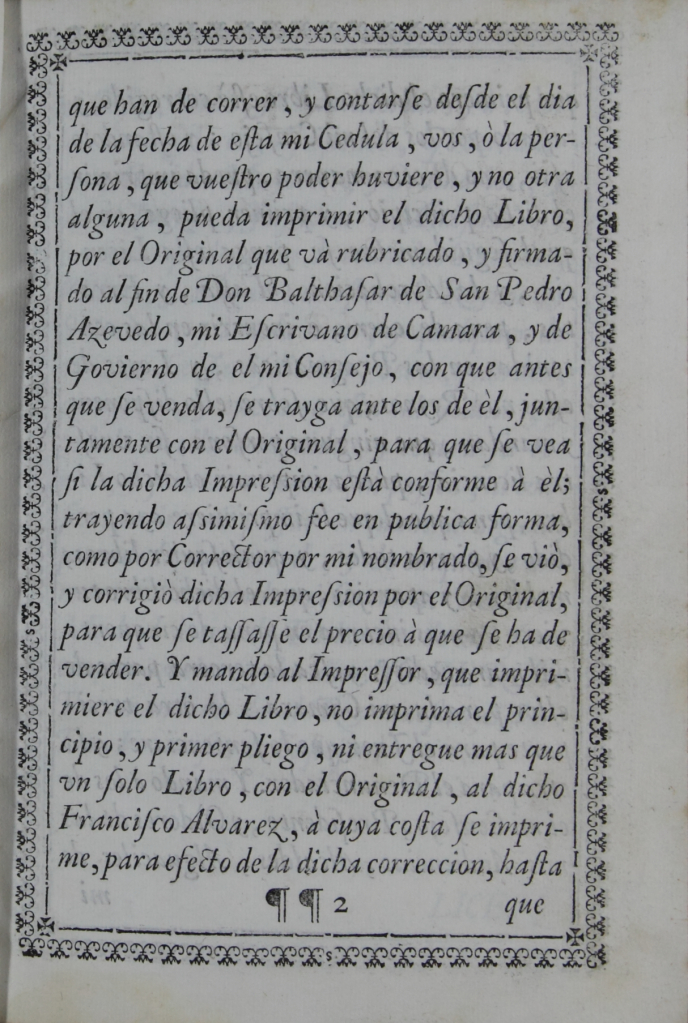 que han de correr, y contarſe deſde el dia
de la fecha de eſta mi Cedula, vos, ò la per-
ſona, que vueſtro poder huviere, y no otra
alguna, pueda imprimir el dicho Libro,
por el Original que và rubricado, y firma-
do al fin de Don Balthaſar de San Pedro
Azevedo, mi Eſcrivano de Camara, y de
Govierno de el mi Conſejo, con que antes
que ſe venda, ſe trayga ante los de èl, jun-
tamente con el Original, para que ſe vea
ſi la dicha Impreſsion eſtà conforme à èl;
trayendo aſsimiſmo fee en publica forma,
como por Corrector por mi nombrado, ſe viò,
y corrigiò dicha Impreſsion por el Original,
para que ſe taſſaſſe el precio à que ſe ha de
vender. Y mando al Impreſſor, que impri-
miere el dicho Libro, no imprima el prin-
cipio, y primer pliego, ni entregue mas que
vn ſolo Libro, con el Original, al dicho
Franciſco Alvarez, à cuya coſta ſe impri-
me, para efecto de la dicha correccion, haſta
¶ ¶ 2 que